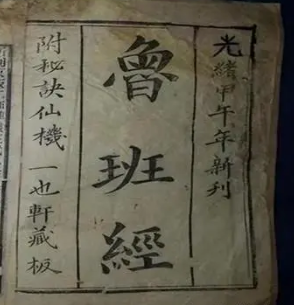 光緒甲午年新刊
魯班經
附秘訣仙機 一也軒藏板